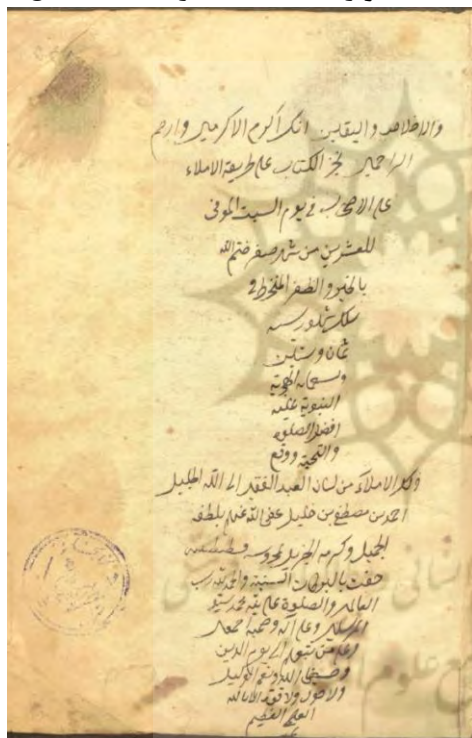 والاخلاص واليقين انك اكرم الاكرمين وارحم
الراحمين نجز الكتاب على طريقة الاملاء
على الاصحاب في يوم السبت الموفى
للعشرين من شهر صفر ختم الله
بالخير والظفر المنخرط في
سلك شهور سنه
ثمان وستين
وتسعمايه الهجرية
النبوية عليه
افضل الصلوة
والتحية ووقع
ذلك الاملاء من لسان العبد الفقير الى الله الجليل
احمد بن مصطفى بن خليل عفى الله عنهم بلطفه
الجميل وكرمه الجزيل بمحروسه قسطنطنيه
حفت بالبركات السنية والحمد لله رب
العالمين والصلوة على نبيه محمد سيد
المرسلين وعلى آله وصحبه اجمعين
ومن تبعهم الى يوم الدين
وحسبنا الله ونعم الوكيل
ولا حول ولا قوة الا بالله
العلي العظيم